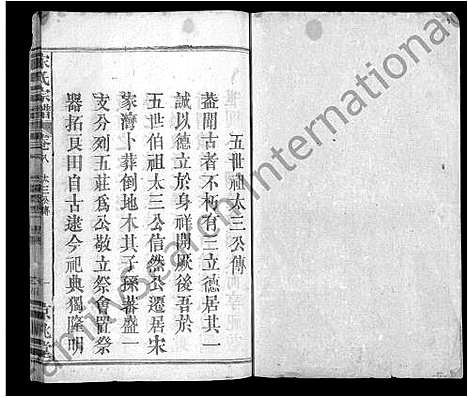 五世祖太三公傳
蓋聞古者不朽有三立德居其一
誠以德立於身祥開厥後吾於
五世伯祖太三公信然公遷居宋
家灣卜葬倒地木其子孫蕃盛一
支分列五莊為公敬立祭會置祭
器拓良田自古逮今祀典獨隆明
宋氏宗譜
卷八
太三公傳
一
京兆堂
Family Search International